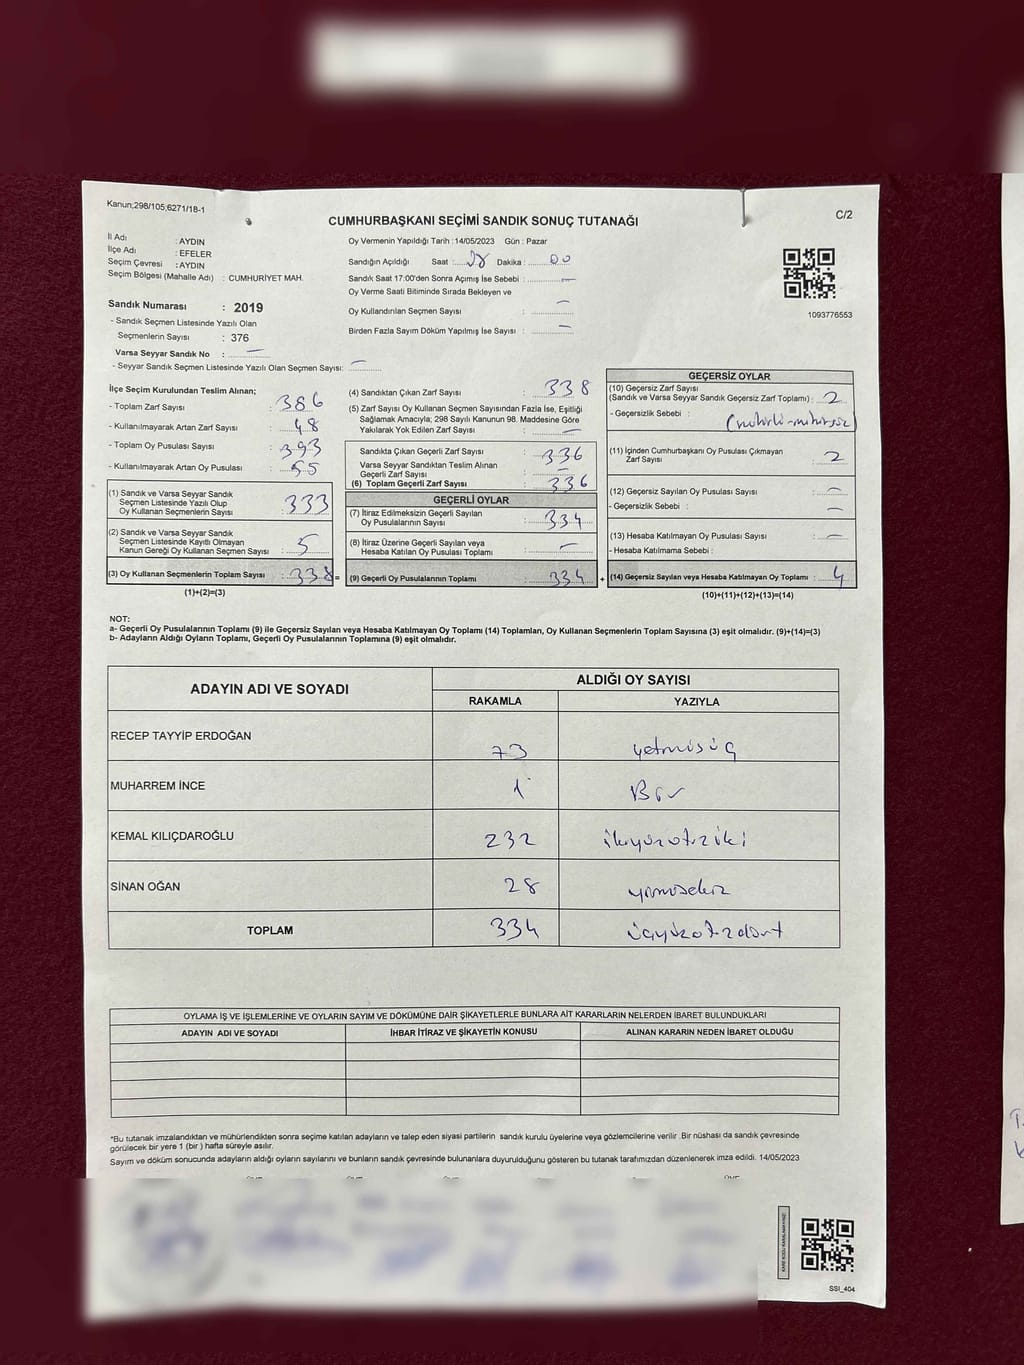 Kanun;298/105;6271/18-1
CUMHURBAŞKANI SEÇİMİ SANDIK SONUÇ TUTANAĞI
C/2
İl Adı : AYDIN
İlçe Adı : EFELER
Seçim Çevresi : AYDIN
Seçim Bölgesi (Mahalle Adı) : CUMHURİYET MAH.
Sandık Numarası : 2019
- Sandık Seçmen Listesinde Yazılı Olan
Seçmenlerin Sayısı : 376
Varsa Seyyar Sandık No : —
- Seyyar Sandık Seçmen Listesinde Yazılı Olan Seçmen Sayısı: —
Oy Vermenin Yapıldığı Tarih : 14/05/2023 Gün : Pazar
Sandığın Açıldığı Saat : Dakika : 00
Sandık Saat 17:00'den Sonra Açımış İse Sebebi : —
Oy Verme Saati Bitiminde Sırada Bekleyen ve
Oy Kullandırılan Seçmen Sayısı : —
Birden Fazla Sayım Döküm Yapılmış İse Sayısı : —
1093776553
İlçe Seçim Kurulundan Teslim Alınan;
- Toplam Zarf Sayısı : 386
- Kullanılmayarak Artan Zarf Sayısı : 48
- Toplam Oy Pusulası Sayısı : 393
- Kullanılmayarak Artan Oy Pusulası : 55
(1) Sandık ve Varsa Seyyar Sandık
Seçmen Listesinde Yazılı Olup
Oy Kullanan Seçmenlerin Sayısı : 333
(2) Sandık ve Varsa Seyyar Sandık
Seçmen Listesinde Kayıtlı Olmayan
Kanun Gereği Oy Kullanan Seçmen Sayısı : 5
(3) Oy Kullanan Seçmenlerin Toplam Sayısı : 338 =
(1)+(2)=(3)
(4) Sandıktan Çıkan Zarf Sayısı : 338
(5) Zarf Sayısı Oy Kullanan Seçmen Sayısından Fazla İse, Eşitliği
Sağlamak Amacıyla; 298 Sayılı Kanunun 98. Maddesine Göre
Yakılarak Yok Edilen Zarf Sayısı : —
Sandıkta Çıkan Geçerli Zarf Sayısı : 336
Varsa Seyyar Sandıktan Teslim Alınan
Geçerli Zarf Sayısı : —
(6) Toplam Geçerli Zarf Sayısı : 336
GEÇERLİ OYLAR
(7) İtiraz Edilmeksizin Geçerli Sayılan
Oy Pusulalarının Sayısı : 334
(8) İtiraz Üzerine Geçerli Sayılan veya
Hesaba Katılan Oy Pusulası Toplamı : —
(9) Geçerli Oy Pusulalarının Toplamı : 334 +
GEÇERSİZ OYLAR
(10) Geçersiz Zarf Sayısı
(Sandık ve Varsa Seyyar Sandık Geçersiz Zarf Toplamı) : 2
- Geçersizlik Sebebi :
(11) İçinden Cumhurbaşkanı Oy Pusulası Çıkmayan
Zarf Sayısı : 2
(12) Geçersiz Sayılan Oy Pusulası Sayısı : —
- Geçersizlik Sebebi : —
(13) Hesaba Katılmayan Oy Pusulası Sayısı : —
- Hesaba Katılmama Sebebi :
(14) Geçersiz Sayılan veya Hesaba Katılmayan Oy Toplamı : 4
(10)+(11)+(12)+(13)=(14)
NOT:
a- Geçerli Oy Pusulalarının Toplamı (9) ile Geçersiz Sayılan veya Hesaba Katılmayan Oy Toplamı (14) Toplamları, Oy Kullanan Seçmenlerin Toplam Sayısına (3) eşit olmalıdır. (9)+(14)=(3)
b- Adayların Aldığı Oyların Toplamı, Geçerli Oy Pusulalarının Toplamına (9) eşit olmalıdır.
ADAYIN ADI VE SOYADI
ALDIĞI OY SAYISI
RAKAMLA YAZIYLA
RECEP TAYYİP ERDOĞAN 73 yetmişüç
MUHARREM İNCE 1 Bir
KEMAL KILIÇDAROĞLU 232 ikiyüzotuziki
SİNAN OĞAN 28 yirmisekiz
TOPLAM 334 üçyüzotuzdört
OYLAMA İŞ VE İŞLEMLERİNE VE OYLARIN SAYIM VE DÖKÜMÜNE DAİR ŞİKAYETLERLE BUNLARA AİT KARARLARIN NELERDEN İBARET BULUNDUKLARI
ADAYIN ADI VE SOYADI İHBAR İTİRAZ VE ŞİKAYETİN KONUSU ALINAN KARARIN NEDEN İBARET OLDUĞU
*Bu tutanak imzalandıktan ve mühürlendikten sonra seçime katılan adayların ve talep eden siyasi partilerin sandık kurulu üyelerine veya gözlemcilerine verilir .Bir nüshası da sandık çevresinde
görülecek bir yere 1 (bir ) hafta süreyle asılır.
Sayım ve döküm sonucunda adayların aldığı oyların sayılarını ve bunların sandık çevresinde bulunanlara duyurulduğunu gösteren bu tutanak tarafımızdan düzenlenerek imza edildi. 14/05/2023
SSI_404